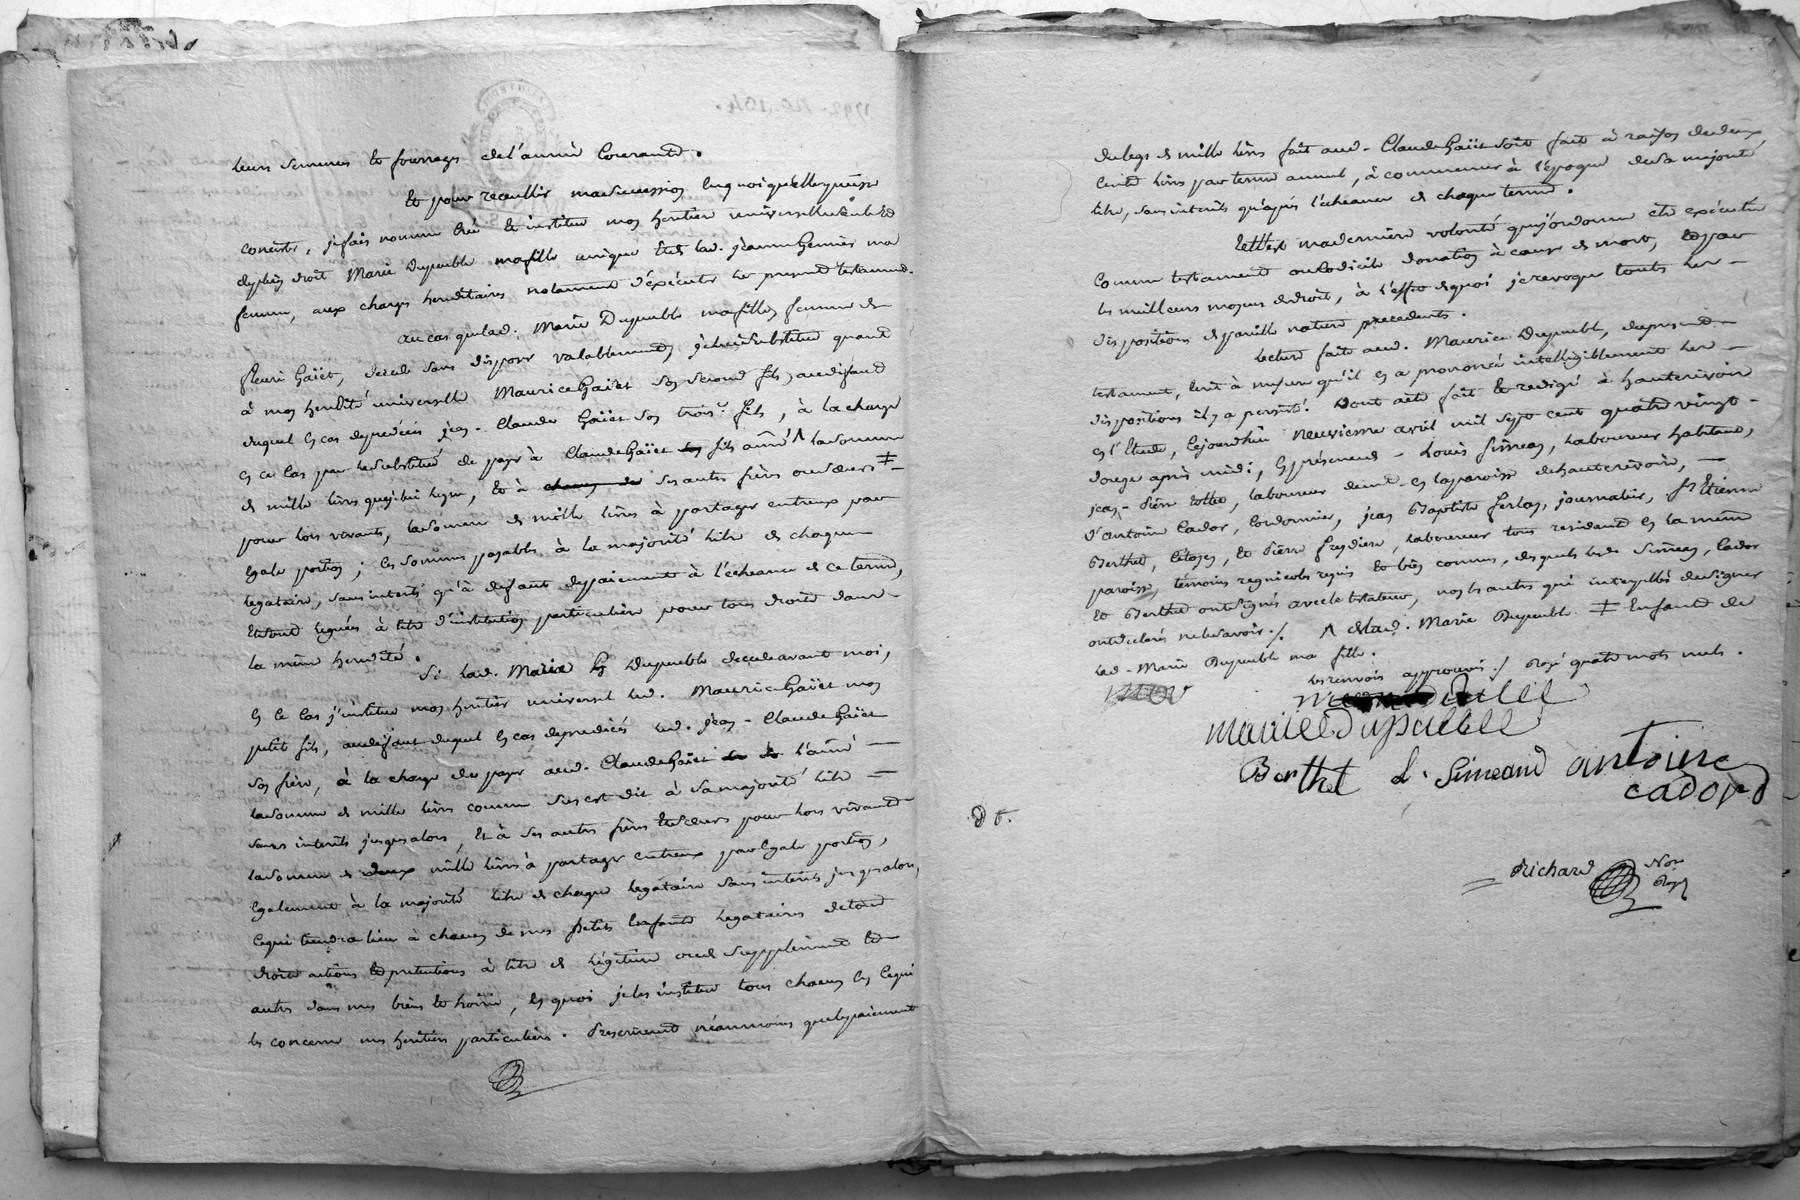 leurs semences et fourrages de l'année Courante.
Et pour recueillir ma succession en quoi qu'elle puisse
consister, je fais nomme crée et institue mon héritière universelle seule et
de plein droit Marie Dupeuble ma fille unique et de lad. jeanne
femme, aux charges héréditaires notament d'exécuter le present testament.
au cas que lad. Marie Dupeuble ma fille, femme de
fleuri Gaïet, décede sans disposer valablement, je lui substitue quant
à mon heredité universelle Maurice Gaïet son second fils, au défaut
duquel en cas de predécés jean-Claude Gaïet son trois.e fils, à la charge
en ce cas par le substitué de payer à Claude Gaïet fils ainé la somme
de mille livres que je lui legue, et à ses autres frères ou soeurs ‡
pour lors vivants, la somme de mille livres à partager entreux par
Egale portion; les sommes payables à la majorité dite de chaque
legataire, sans interets qu'à defaut de paiement à l'echeance de ce terme,
Et sont leguées à titre d'institution particuliere pour tous droits dans
la même heredité.
Si lad. Marie Dupeuble decede avant moi,
en ce cas j'institue mon heritier universel led. Maurice Gaïet mon
petit fils, au defaut duquel en cas de predécés led. jean-Claude Gaïet
son frère, à la charge de payer aud. Claude Gaïet l'ainé
la somme de mille livres comme sus est dit à sa majorité
sans interets jusqu'alors, Et à ses autres frères et soeurs pour lors vivants
la somme de deux mille livres à partager entreux par Egale portion,
Egalement à la majorité de chaque legataire sans interets jusqu'alors,
ce qui tiendra lieu à chacun de mes petits Enfants legataires de tous
droits actions et pretentions à titre de légitime ou de supplément et
autres dans mes biens et hoirie, en quoi je les institue tous chacun en ce qui
les concerne mes heritiers particuliers. Prescrivant néanmoins que le paiement
du legs de mille livres fait aud. Claude Gaïet soit fait à raison de deux
Cents livres par terme annuel, à commencer à l'époque de sa majorité
sans interets qu'après l'échéance de chaque terme.
Telle est ma dernière volonté que j'ordonne etre exécutée
Comme testament ou Codicile donation à cause de mort, et par
les meilleurs moyens de droit, à l'effet de quoi je revoque toutes les
dispositions de pareille nature precedentes.
Lecture faite aud. Maurice Dupeuble, du present
testament, écrit à mesure qu'il en a prononcé intelligiblement les
dispositions il y a persisté. Dont acte fait et redigé à hauterivoire
en l'Etude, Cejourdhui neuvieme avril mil sept cent quatre vingt-
douze après midi, En présence de Louis Siméan, laboureur habitant,
jean-Pierre laboureur en la paroisse de hauterivoire,
d'antoine Cador, Cordonnier, jean Baptiste journalier, St Etienne
Berthet, Citoyen, et Pierre laboureur tous residant en la même
paroisse, témoins regnicoles requis et bien connus, desquels lesd. Siméan, Cador
et Berthet ont signés avec le testateur, non les autres qui interpellés de signer
ont declaré ne le savoir ./. ^ de lad. Marie Dupeuble. ‡ Enfants de
lad. Marie Dupeuble ma fille.
les renvois approuvés ./. Rayé quatre mots nuls.
Maurice Dupeuble
Berthet L. Simeand antoine
cadord
D t.
Richard Nore
Royal